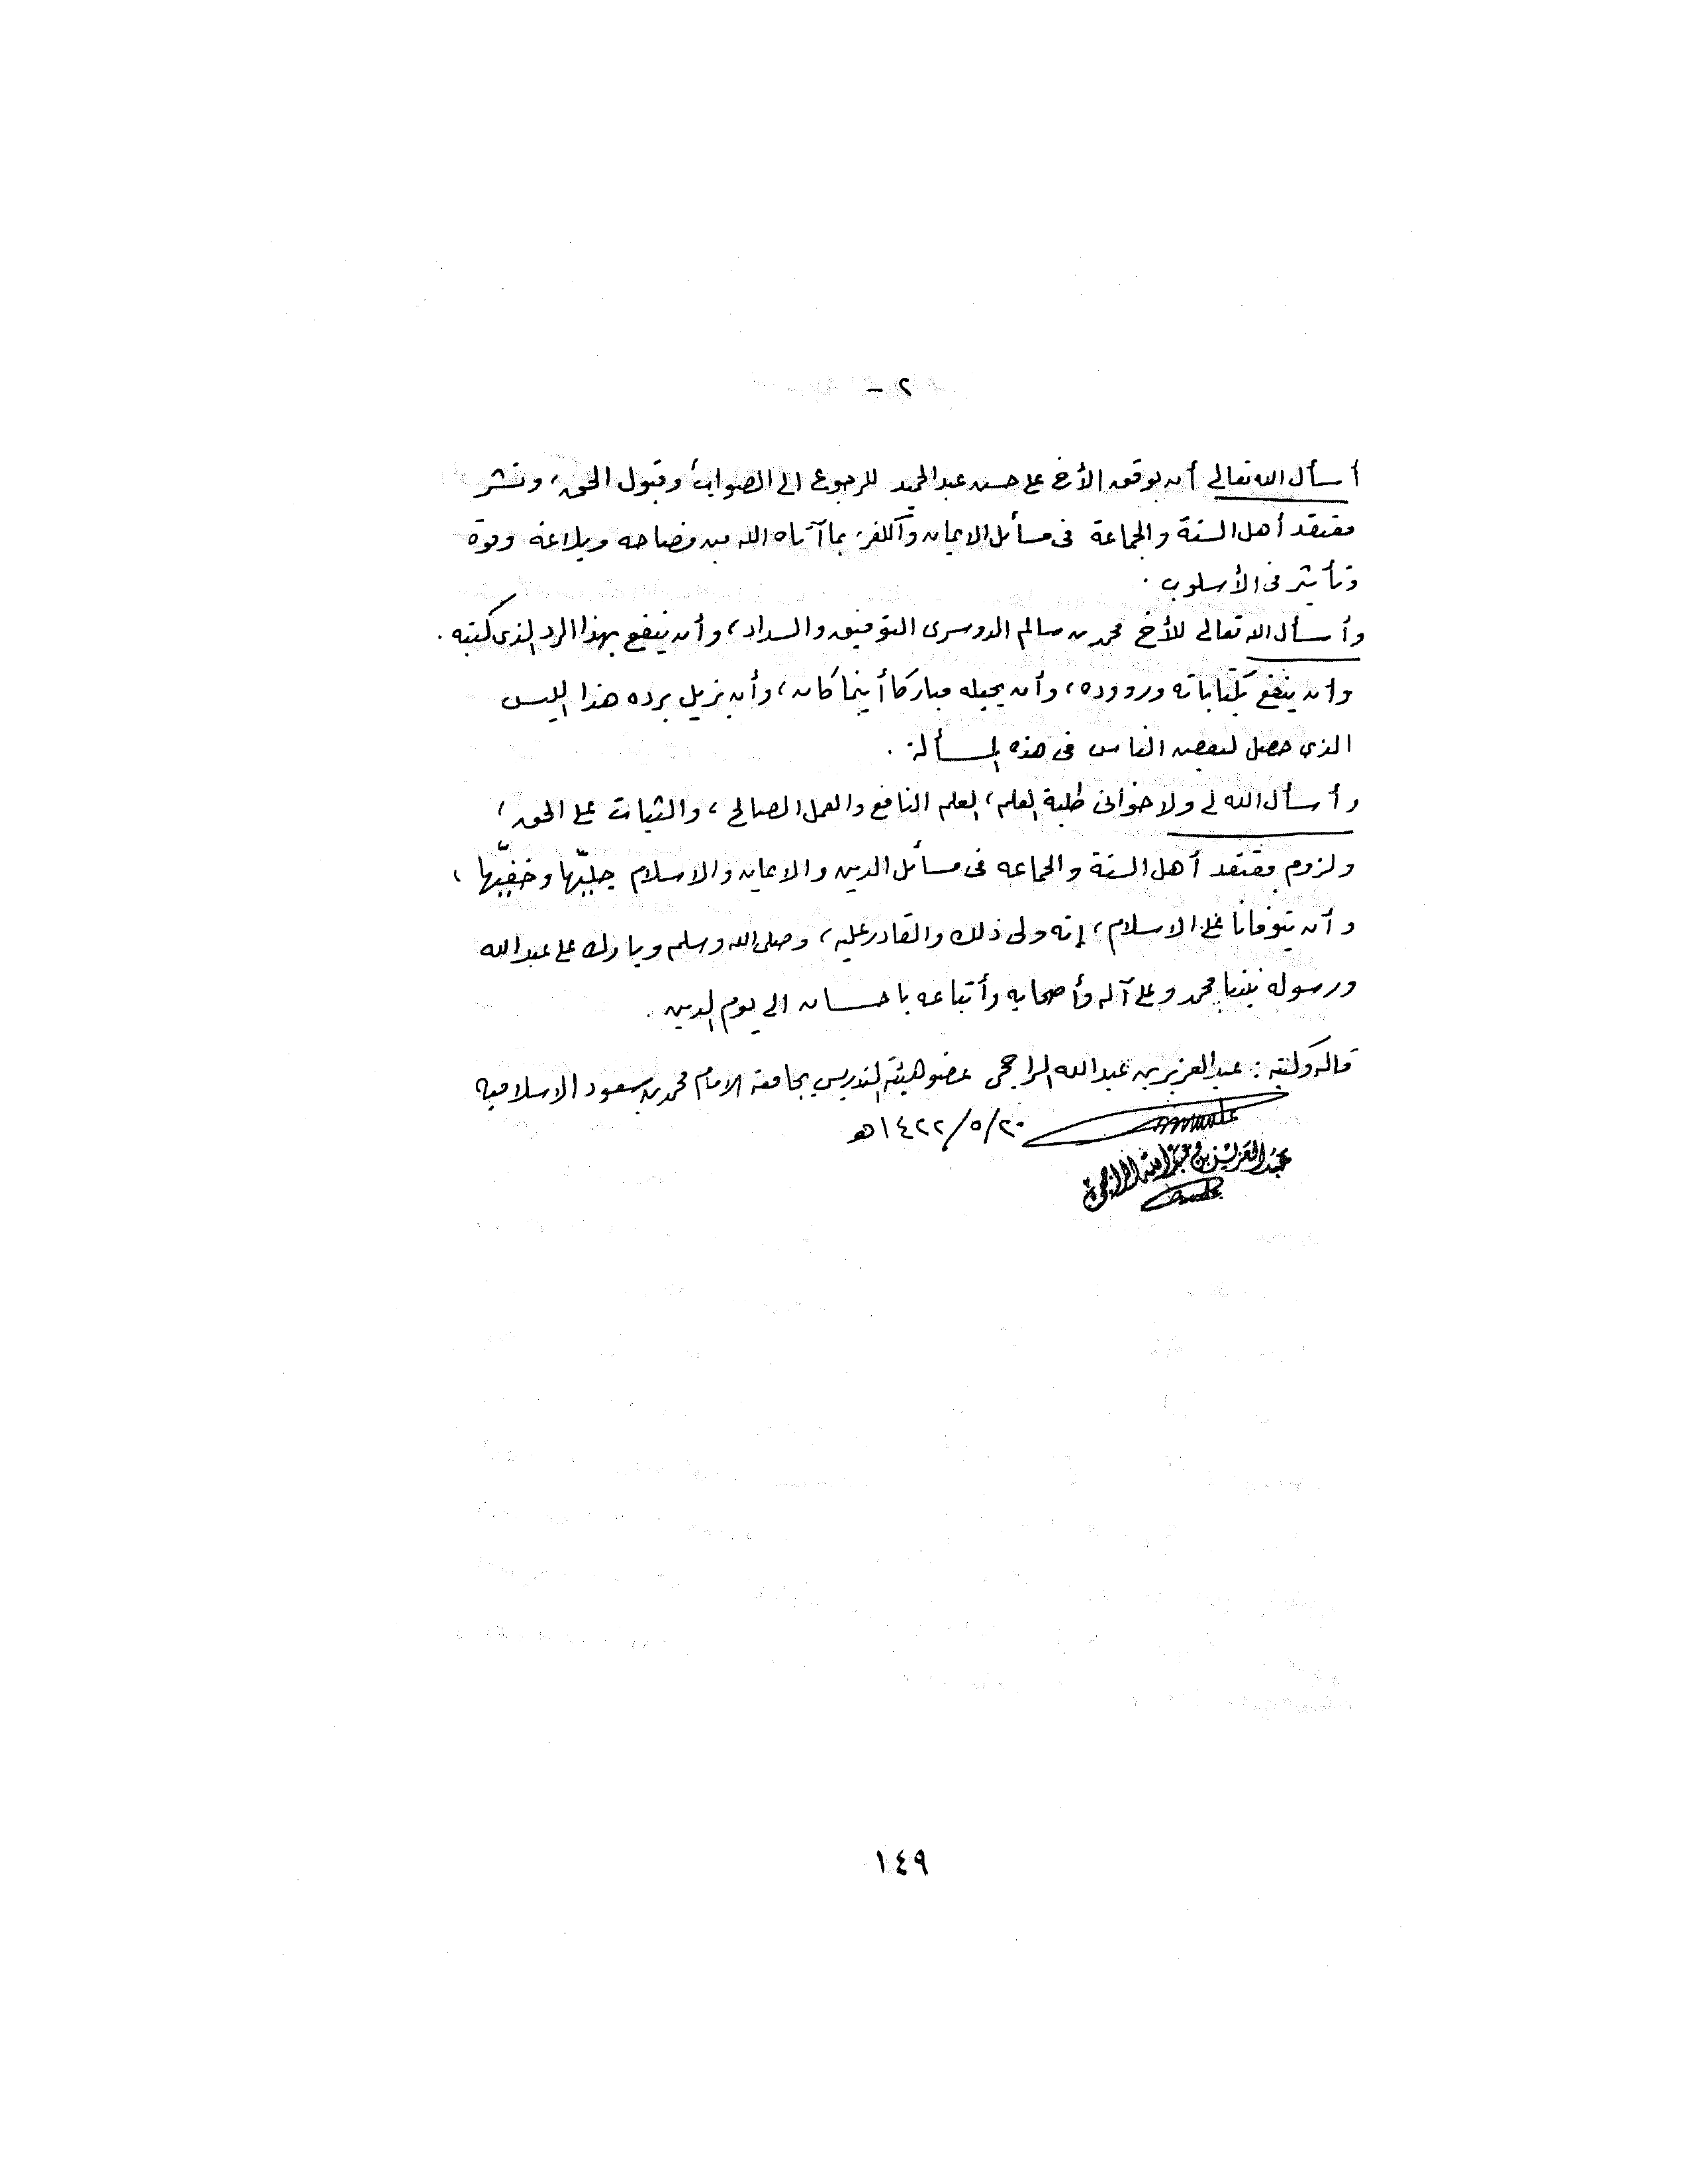 ٢ –
أسأل الله تعالى أن يوفق الأخ علي حسن عبد الحميد للرجوع الى الصواب، وقبول الحق، ونشر
معتقد أهل السنة والجماعة فى مسائل الايمان والكفر، بما آتاه الله من فصاحه وبلاغة وقوة
وتأثير فى الأسلوب .
وأسأل الله تعالى للأخ محمد بن سالم الدوسرى التوفيق والسداد، وأن ينفع بهذا الرد الذى كتبه .
وأن ينفع بكتاباته وردوده، وأن يجعله مباركا أينما كان، وأن يزيل برده هذا اللبس
الذى حصل لبعض الناس فى هذه المسألة .
وأسأل الله لي ولاخوانى طلبة العلم، العلم النافع والعمل الصالح، والثبات على الحق،
ولزوم معتقد أهل السنة والجماعه فى مسائل الدين والايمان والاسلام جليّها وخفيّها،
وأن يتوفانا على الاسلام، إنه ولى ذلك والقادر عليه، وصلى الله وسلم وبارك على عبد الله
ورسوله نبينا محمد وعلى آله وأصحابه وأتباعه باحسان الى يوم الدين .
قاله وكتبه : عبد العزيز بن عبد الله الراجحى عضو هيئة التدريس بجامعة الامام محمد بن سعود الاسلاميه
٢٠/٥/١٤٢٢هـ
عبد العزيز بن عبد الله الراجحي
١٤٩